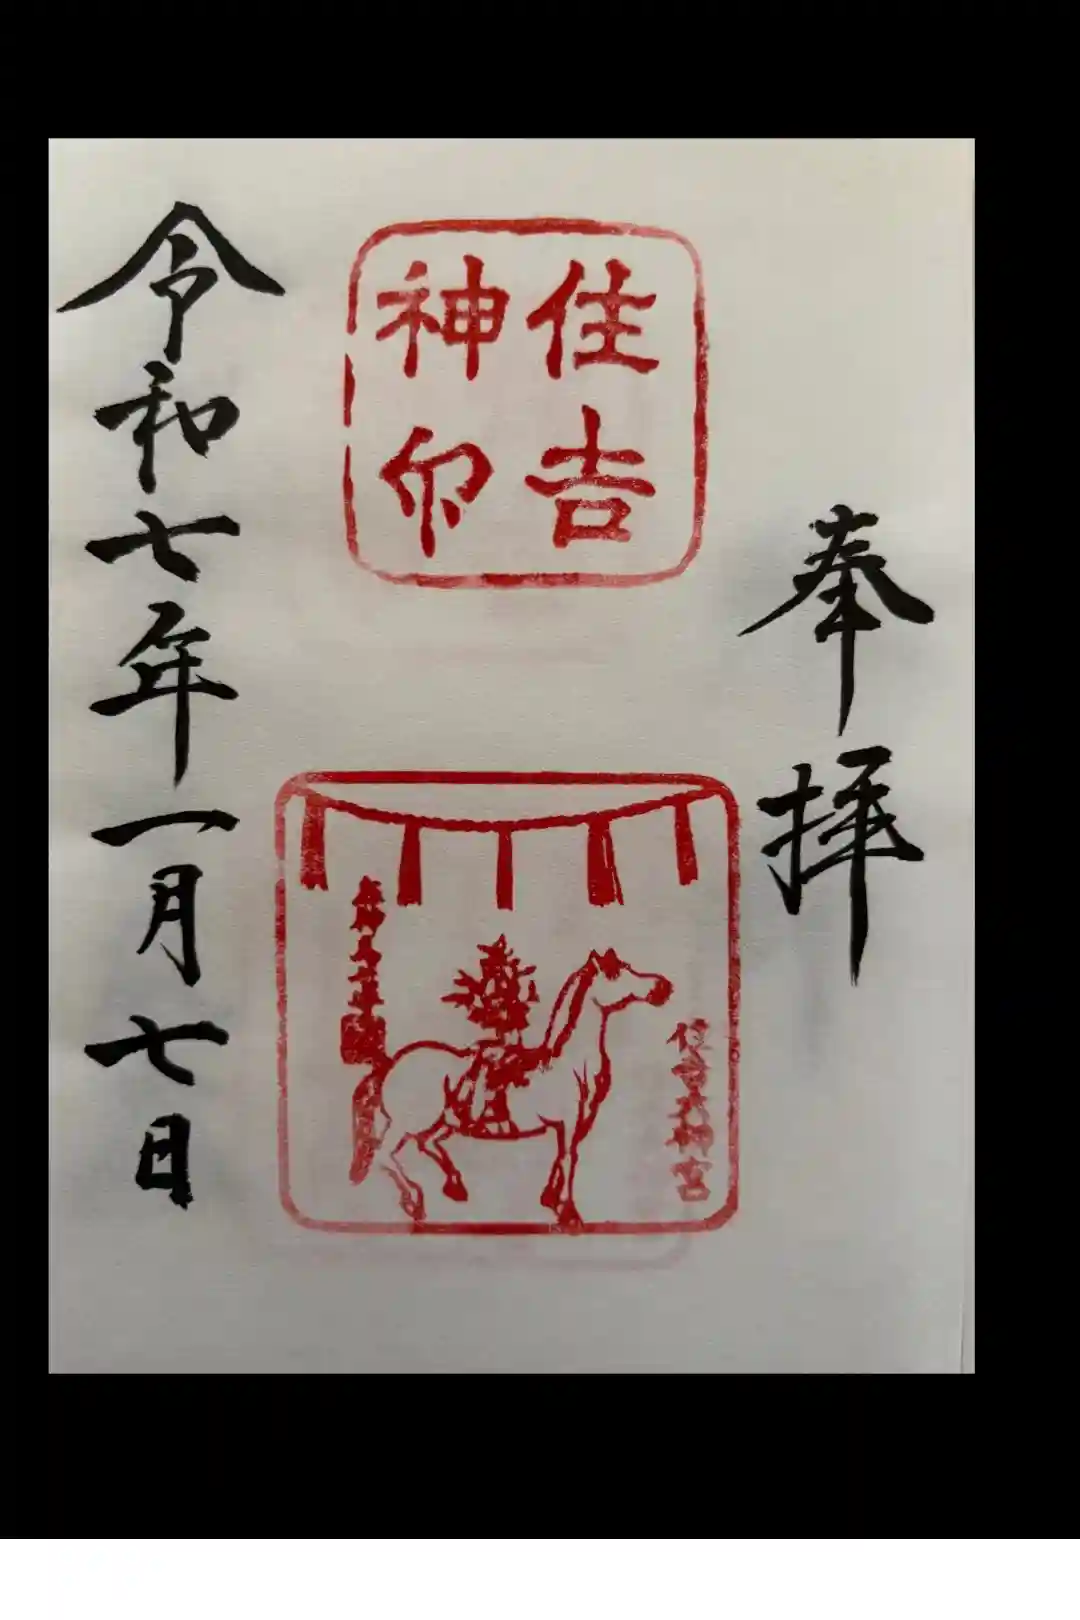 奉拝
住吉
神印
住吉大神宮
令和七年一月七日